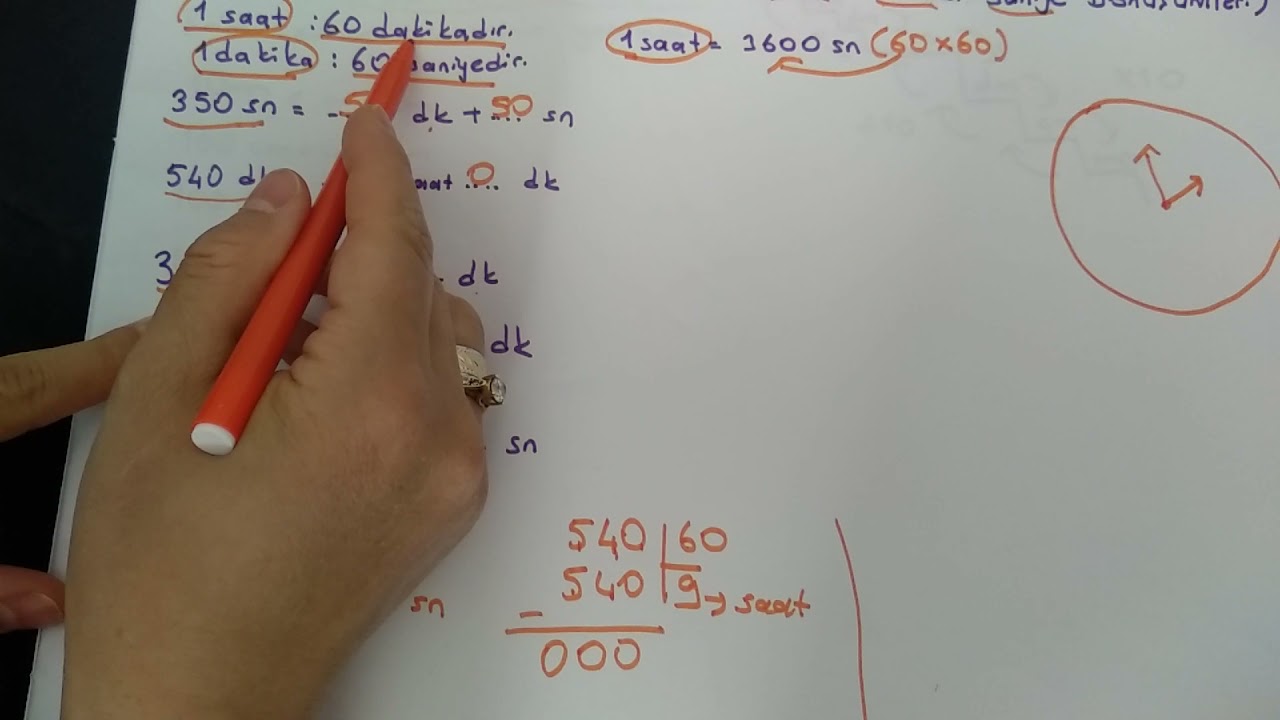 1 saat : 60 dakikadır.
1 dakika : 60 saniyedir.
1 saat = 3600 sn (60x60)
350 sn = 5 dk + 50 sn
540 saat 0 dk
3 dk
dk
sn
sn
540 60
540 9 → saat
-
000